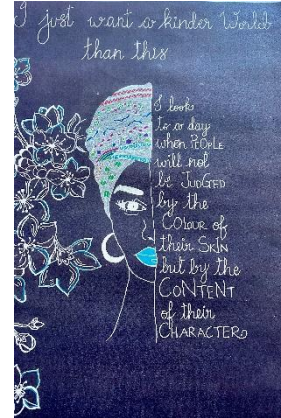 I just want a kinder World
than this
I look
to a day
when PEOPLE
will not
be JUDGED
by the
COlOUR of
their SKIN
but by the
CONTENT
of their
CHARACTER